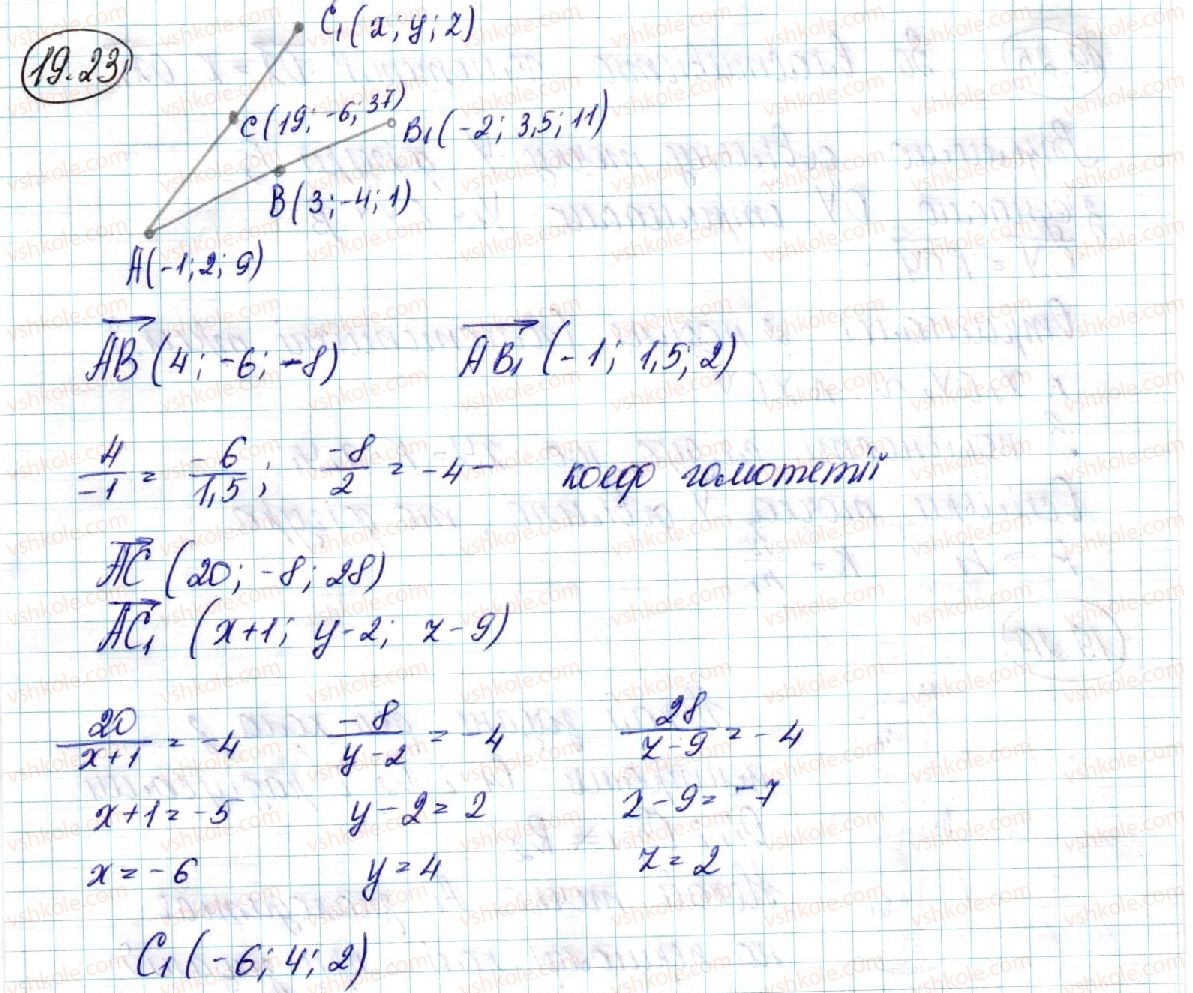 19.23
C₁(x; y; z)
C(19; -6; 37)
B₁(-2; 3,5; 11)
B(3; -4; 1)
A(-1; 2; 9)
AB (4; -6; -8) AB₁ (-1; 1,5; 2)
4/-1 = -6/1,5; -8/2 = -4 - коеф гомотетії
AC (20; -8; 28)
AC₁ (x+1; y-2; z-9)
20/x+1 = -4 -8/y-2 = -4 28/z-9 = -4
x+1 = -5 y-2 = 2 z-9 = -7
x = -6 y = 4 z = 2
C₁(-6; 4; 2)
vshkole.com